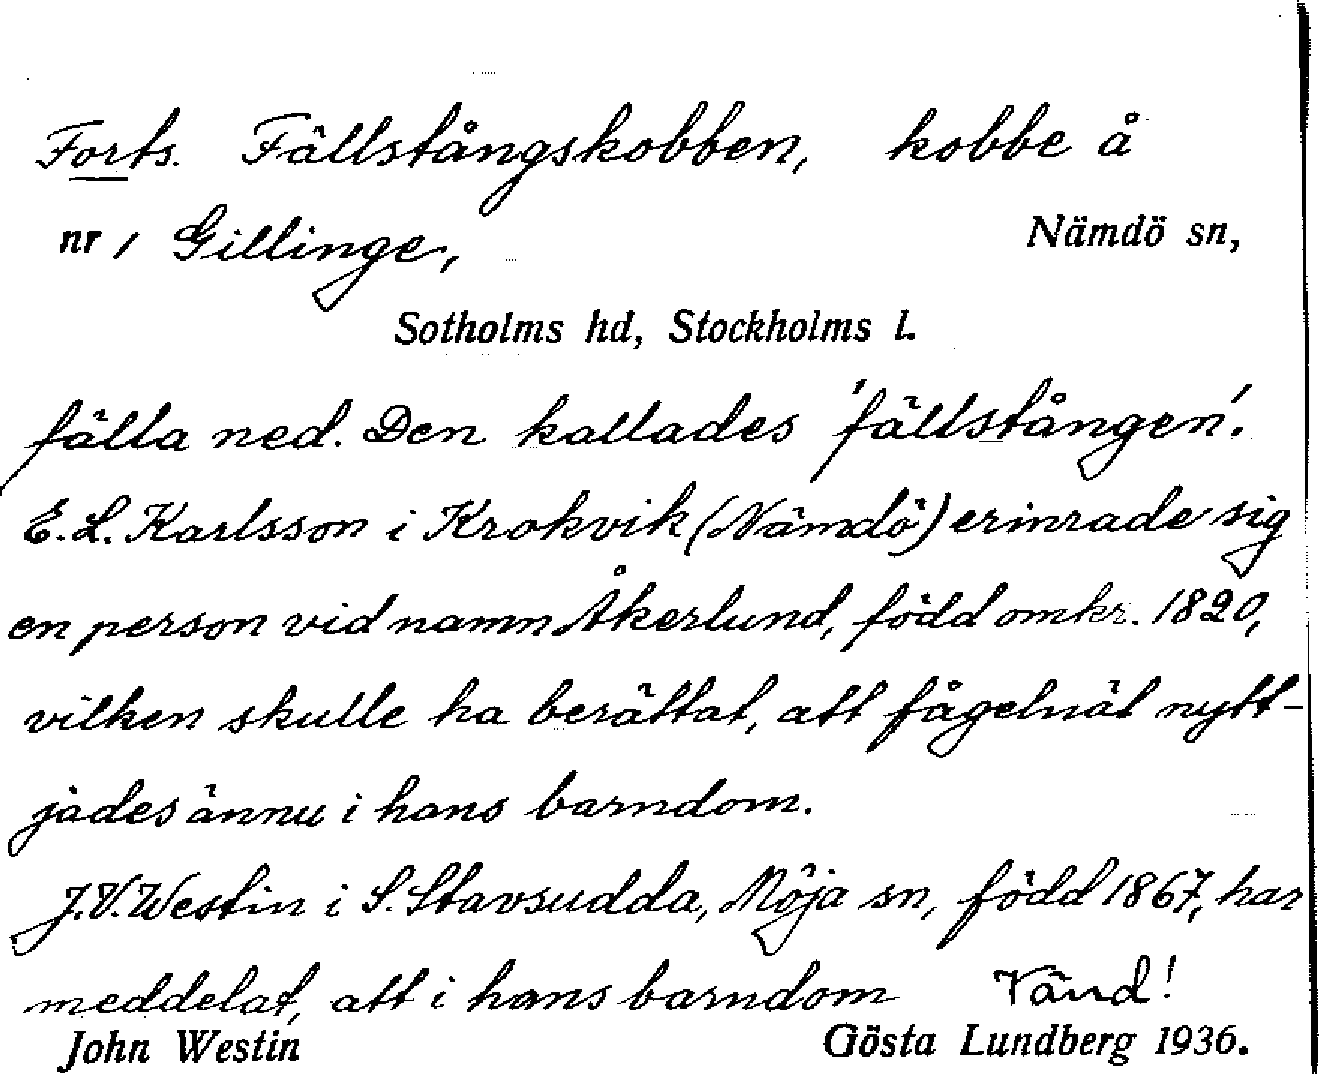 Forts. Fällstångskobben, kobbe å
nr 1 Gillinge, Nämdö sn,
Sotholms hd, Stockholms l.
fälla ned. Den kallades 'fällstången'.
E. L. Karlsson i Krokvik (Nämdö) erinrade sig
en person vid namn Åkerlund, född omkr. 1820,
vilken skulle ha berättat, att fågelnät nytt-
jades ännu i hans barndom.
J. V. Westin i S. Stavsudda, Möja sn, född 1867, har
meddelat, att i hans barndom Vänd!
John Westin Gösta Lundberg 1936.